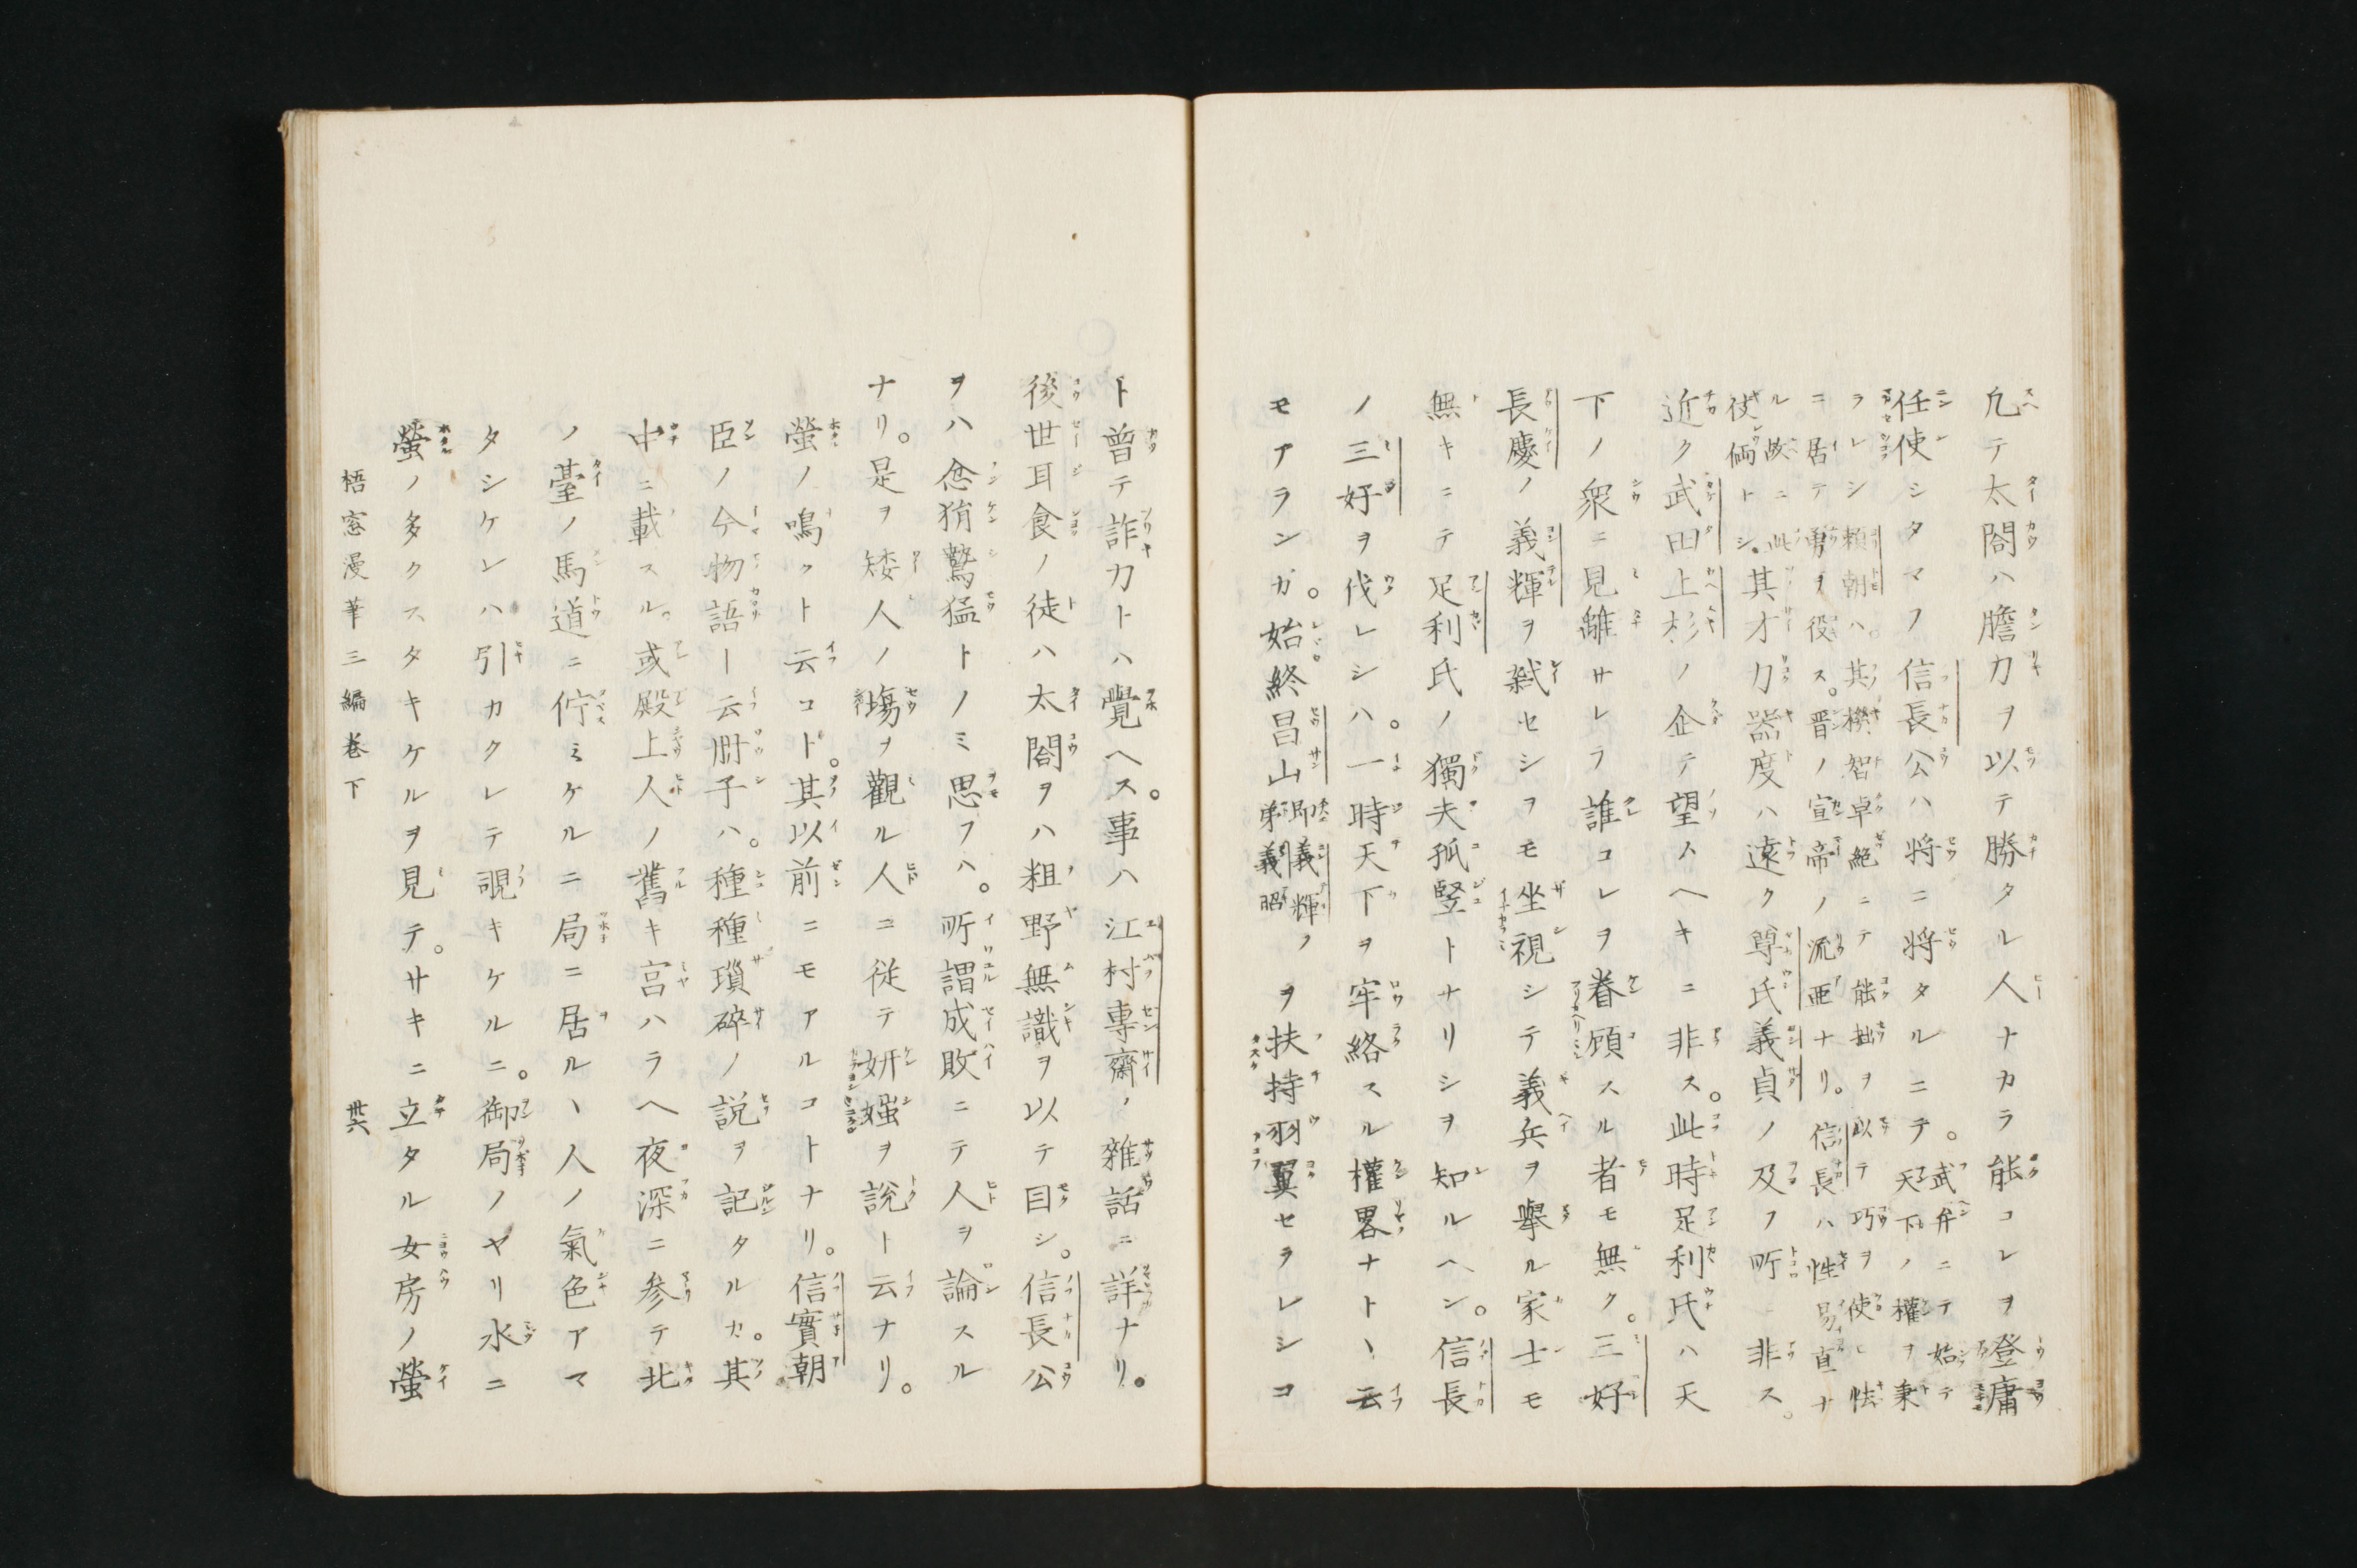 凢テ太閤ハ膽力ヲ以テ勝タル人ナカラ能コレヲ登庸
任使シタマフ信長公ハ将ニ将タルニテ。武弁ニテ始テ天下ノ權ヲ秉
ラレシ頼朝ハ。其機智卓絶ニテ能拙ヲ以テ巧ヲ使ヒ怯
ニ居テ勇ヲ役ス。晋ノ宣帝ノ流亜ナリ。信長ハ性易直ナ
ル故ニ此
伎倆トシ。其才力器度ハ遠ク尊氏義貞ノ及フ所非ス。
近ク武田上杉ノ企テ望ムヘキニ非ス。此時足利氏ハ天
下ノ衆ニ見離サレラ誰コレヲ眷顧スル者モ無ク。三好
長慶ノ義輝ヲ弑セシヲモ坐視シテ義兵ヲ擧ル家士モ
無キニテ足利氏ノ獨夫孤竪トナリシヲ知ルヘシ。信長
ノ三好ヲ伐レシハ。一時天下ヲ牢絡スル權畧ナトヽ云
モアランガ。始終昌山即義輝ノ弟義昭ヲ扶持羽翼セラレシコ
ト曾テ詐力トハ覺ヘス。事ハ江村專齋ノ雜話ニ詳ナリ。
後世耳食ノ徒ハ太閤ヲハ粗野無識ヲ以テ目シ。信長公
ヲハ忿狷鷙猛トノミ思フハ。所謂成敗ニテ人ヲ論スル
ナリ。是ヲ矮人ノ塲ヲ觀ル人ニ従テ妍媸ヲ説ト云ナリ。
螢ノ鳴クト云コト。其以前ニモアルコトナリ。信實朝
臣ノ今物語ト云册子ハ。種種瑣碎ノ説ヲ記タルカ。其
中ニ載スル。或殿上人ノ舊キ宮ハラヘ夜深ニ参テ北
ノ臺ノ馬道ニ佇ミケルニ局ニ居ルヽ人ノ氣色アマ
タシケレハ引カクレテ覗キケルニ。御局ノヤリ水ニ
螢ノ多クスタキケルヲ見テ。サキニ立タル女房ノ螢
梧窓漫筆三編巻下　卅六